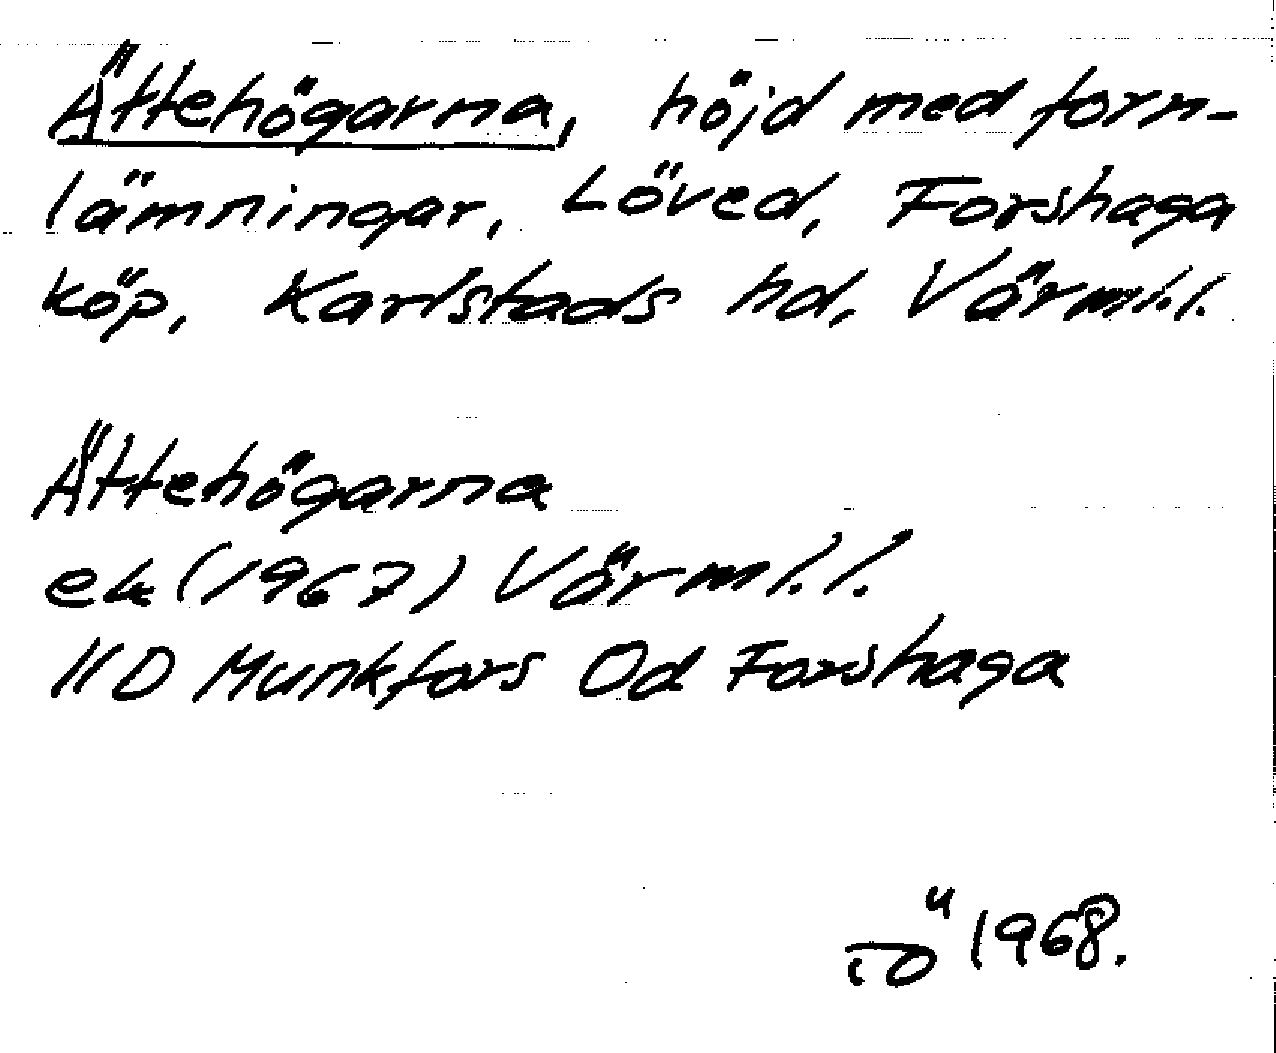 Ättehögarna, höjd med forn-
lämningar, Löved, Forshaga
köp, Karlstads hd, Värml.l.
Ättehögarna
ek (1967) Värml.l.
11D Munkfors Od Forshaga
1968.